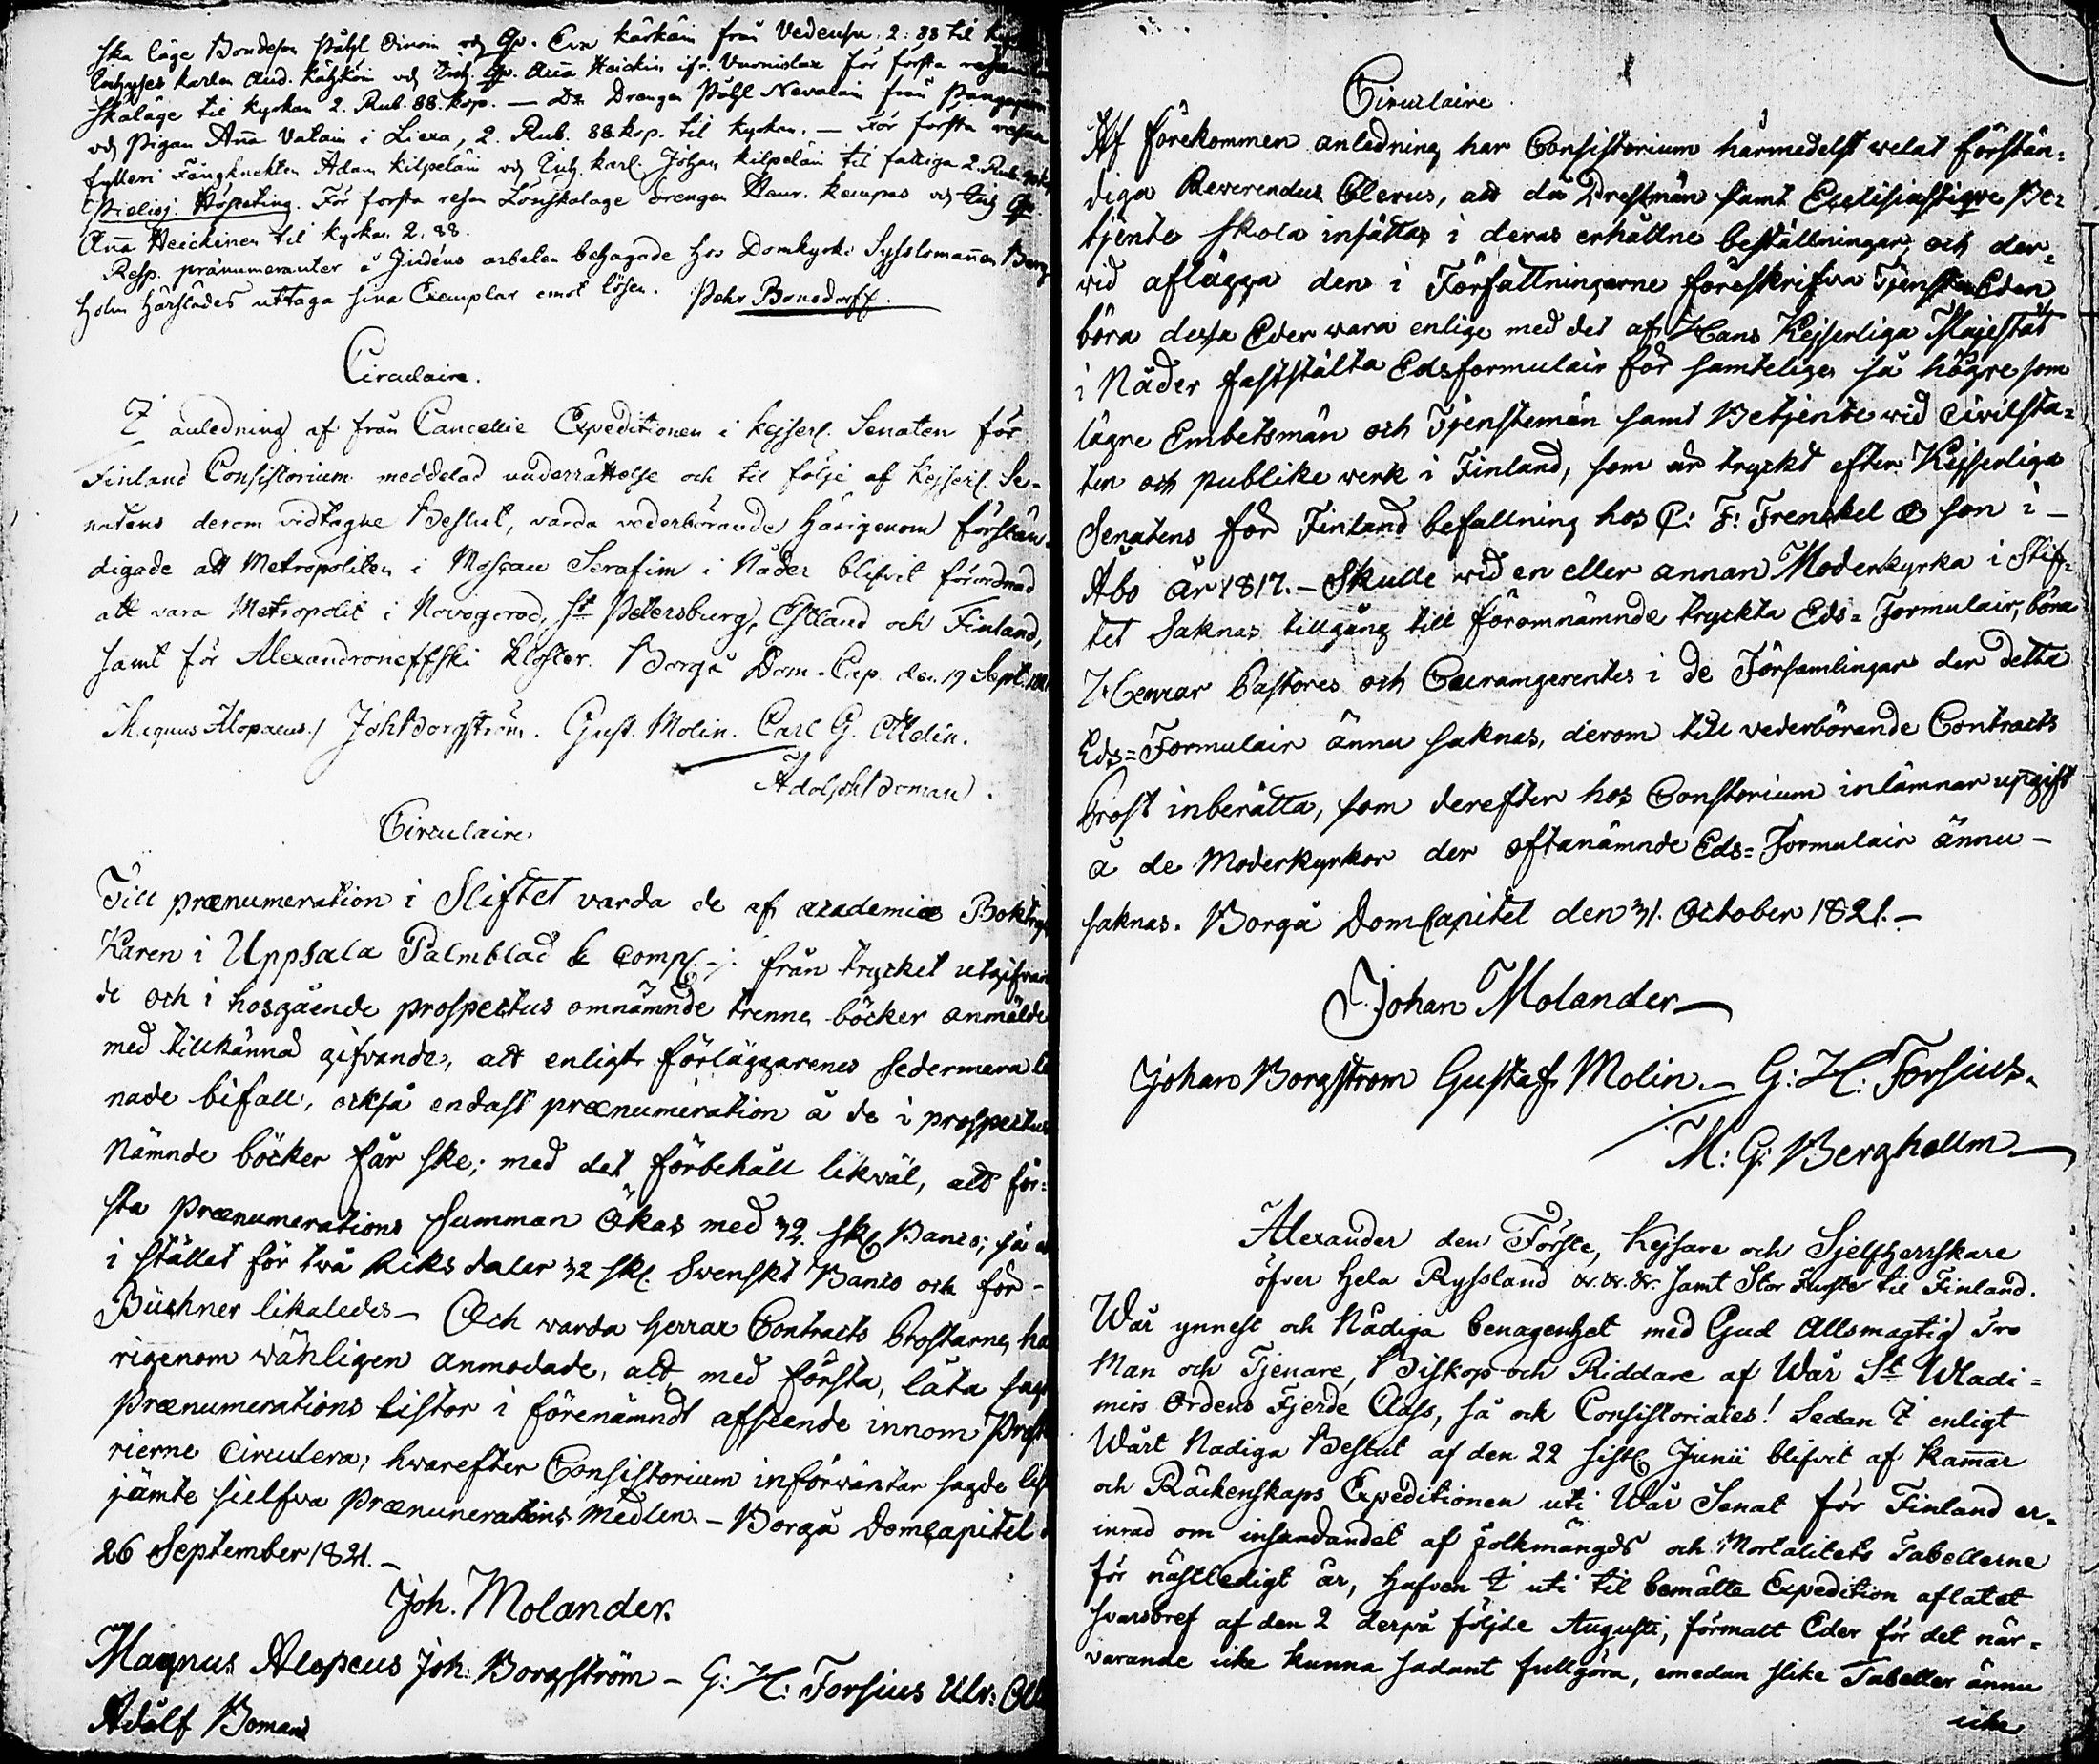 ska läge Bondeson Påhl Oinoin och Qp. Eva Kärkäin från Vedensu, 2:88 til
Karlen And. Kähköin och Enk. Qp. Aña Heickin ifr. Vuonislax för första
skaläge til kyrkan 2. Rub. 88. kop. — Dr. Drengen Påhl Nevalain från
och Pigan Aña Vatain i Liexa, 2. Rub. 88 kop. til kyrkan. — För första resan
fylleri Fångknekten Adam Kilpeläin och Enk. karl. Johan Kilpeläin til fattiga 2. Rub.
Pielisj. Hösteting. För första resan Lönskalage drengen Haur. Kempas och Enk Qp
Aña Heickinen til kyrkan 2.88.
Resp. pränumeranter å Judéns arbeten behagade hos Domkyrko Sysslomañen Berg
holm härstädes uttaga sina Exemplar emot lösen. Pehr Bonsdorff.
Circulaire.
I anledning af från Cancellie Expeditionen i Kejserl. Senaten för
Finland Consistorium meddelad underrättelse och til följe af Kejserl. Se-
natens derom vidtagne Beslut, varda vederbörande härigenom förstän-
digade att Metropoliten i Moscau Serafim i Nåder blifvit förordnad
att vara Metropolit i Novogorod, St Petersburg, Estland och Finland,
samt för Alexandroneffski Kloster. Borgå Dom-Cap. den 19 Sept. 1821
Magnus Alopaeus. / Joh Borgström. Gust. Molin. Carl G. Ottelin.
Adolph Boman.
Circulaire
Till prænumeration i Stiftet varda de af academiæ Boktryc
karen i Uppsala Palmblad & Comp. från trycket utgifvan
de och i hosgående prospectus omnämnde trenne böcker anmälde
med tillkänna gifvande, att enligt förläggarenes sedermera
nade bifall, också endast prænumeration å de i prospectus
nämnde böcker får ske; med det förbehåll likväl, att för-
sta Prænumerations summan Ökas med 32. sk. Banco; så at
i stället för två Riksdaler 32 sk. Svenskt Banco och för-
Büchner likaledes — Och warda herrar Contracts Prostarne, hä
rigenom wänligen anmodade, att med första, låta sag
Prænumerations listor i förenämndt afseende innom Prost
rierne Circulera; hwarefter Consistorium införwäntar sagde lis
jämte sielfva Prænumerations Medlen. — Borgå DomCapitel d
26 September 1821. —
Joh. Molander.
Magnus Alopæus Joh: Borgström — G: H: Forsius Ulr:
Adolf Boman
Circulaire
Af förekommen anledning har Consistorium härmedelst welat förstän=
diga Reverendus Clerus, att då Drestmän samt Ecclesiastique Be=
tjente skola insättas i deras erhållne beställningar, och der=
wid aflägga den i Författningarne föreskrifva TjensteEden
böra dessa Eder wara enlige med det af Hans Kejserliga Majestät
i Nåder fastställta Edsformulair för samtelige så högre som
lägre Embetsmän och Tjenstemän samt Betjente wid Civilsta=
ten och publike werk i Finland, som är tryckt efter Kejserliga
Senatens för Finland befallning hos C: F: Frenckel & son i —
Åbo År 1817. — Skulle wid en eller annan Moderkyrka i Stif=
tet Saknas tillgång till föromnämnde tryckta Eds=Formulair, böra
Herrar Pastores och Curamgerentes i de Församlingar der detta
Eds=Formulair ännu saknas, derom till vederbörande Contracts
Prost inberätta, som derefter hos Constorium inlämnar upgift
å de Moderkyrkor der oftanämnde Eds=Formulair ännu —
saknas. Borgå DomCapitel den 31. October 1821. —
Johan Molander
Johan Borgström Gustaf Molin. — G: H: Forsius.
M: G: Berghellm
Alexander den Förste, Kejsare och Sjelfherrskare
öfver hela Ryssland &. &. &. samt Stor Furste til Finland.
Wår ynnest och Nådiga benägenhet med Gud Allsmägtig Tro
Man och Tjenare, Biskop och Riddare af Wår St Wladi=
mirs Ordens Fjerde Class, så ock Consistoriales! Sedan I enligt
Wårt Nådiga Beslut af den 22 sistl. Junii blifvit af Kam̄ar
och Räckenskaps Expeditionen uti Wår Senat för Finland er=
inrad om insändandet af Folkmängds och Mortalitets Tabellerne
för nästledigt år, hafven I uti til bemälte Expedition aflåtet
svarsbref af den 2 derpå följde Augusti, förmält Eder för det när=
varande icke kunna sådant fullgöra, emedan slike Tabeller ännu
icke